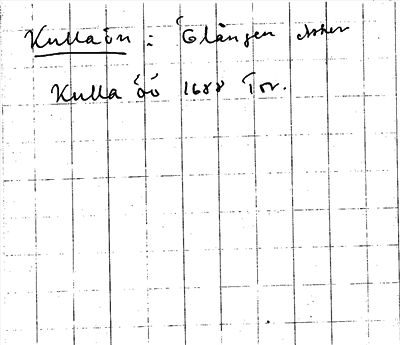 Kullaön : Elången Asker
Kulla öö 1688 Tor.